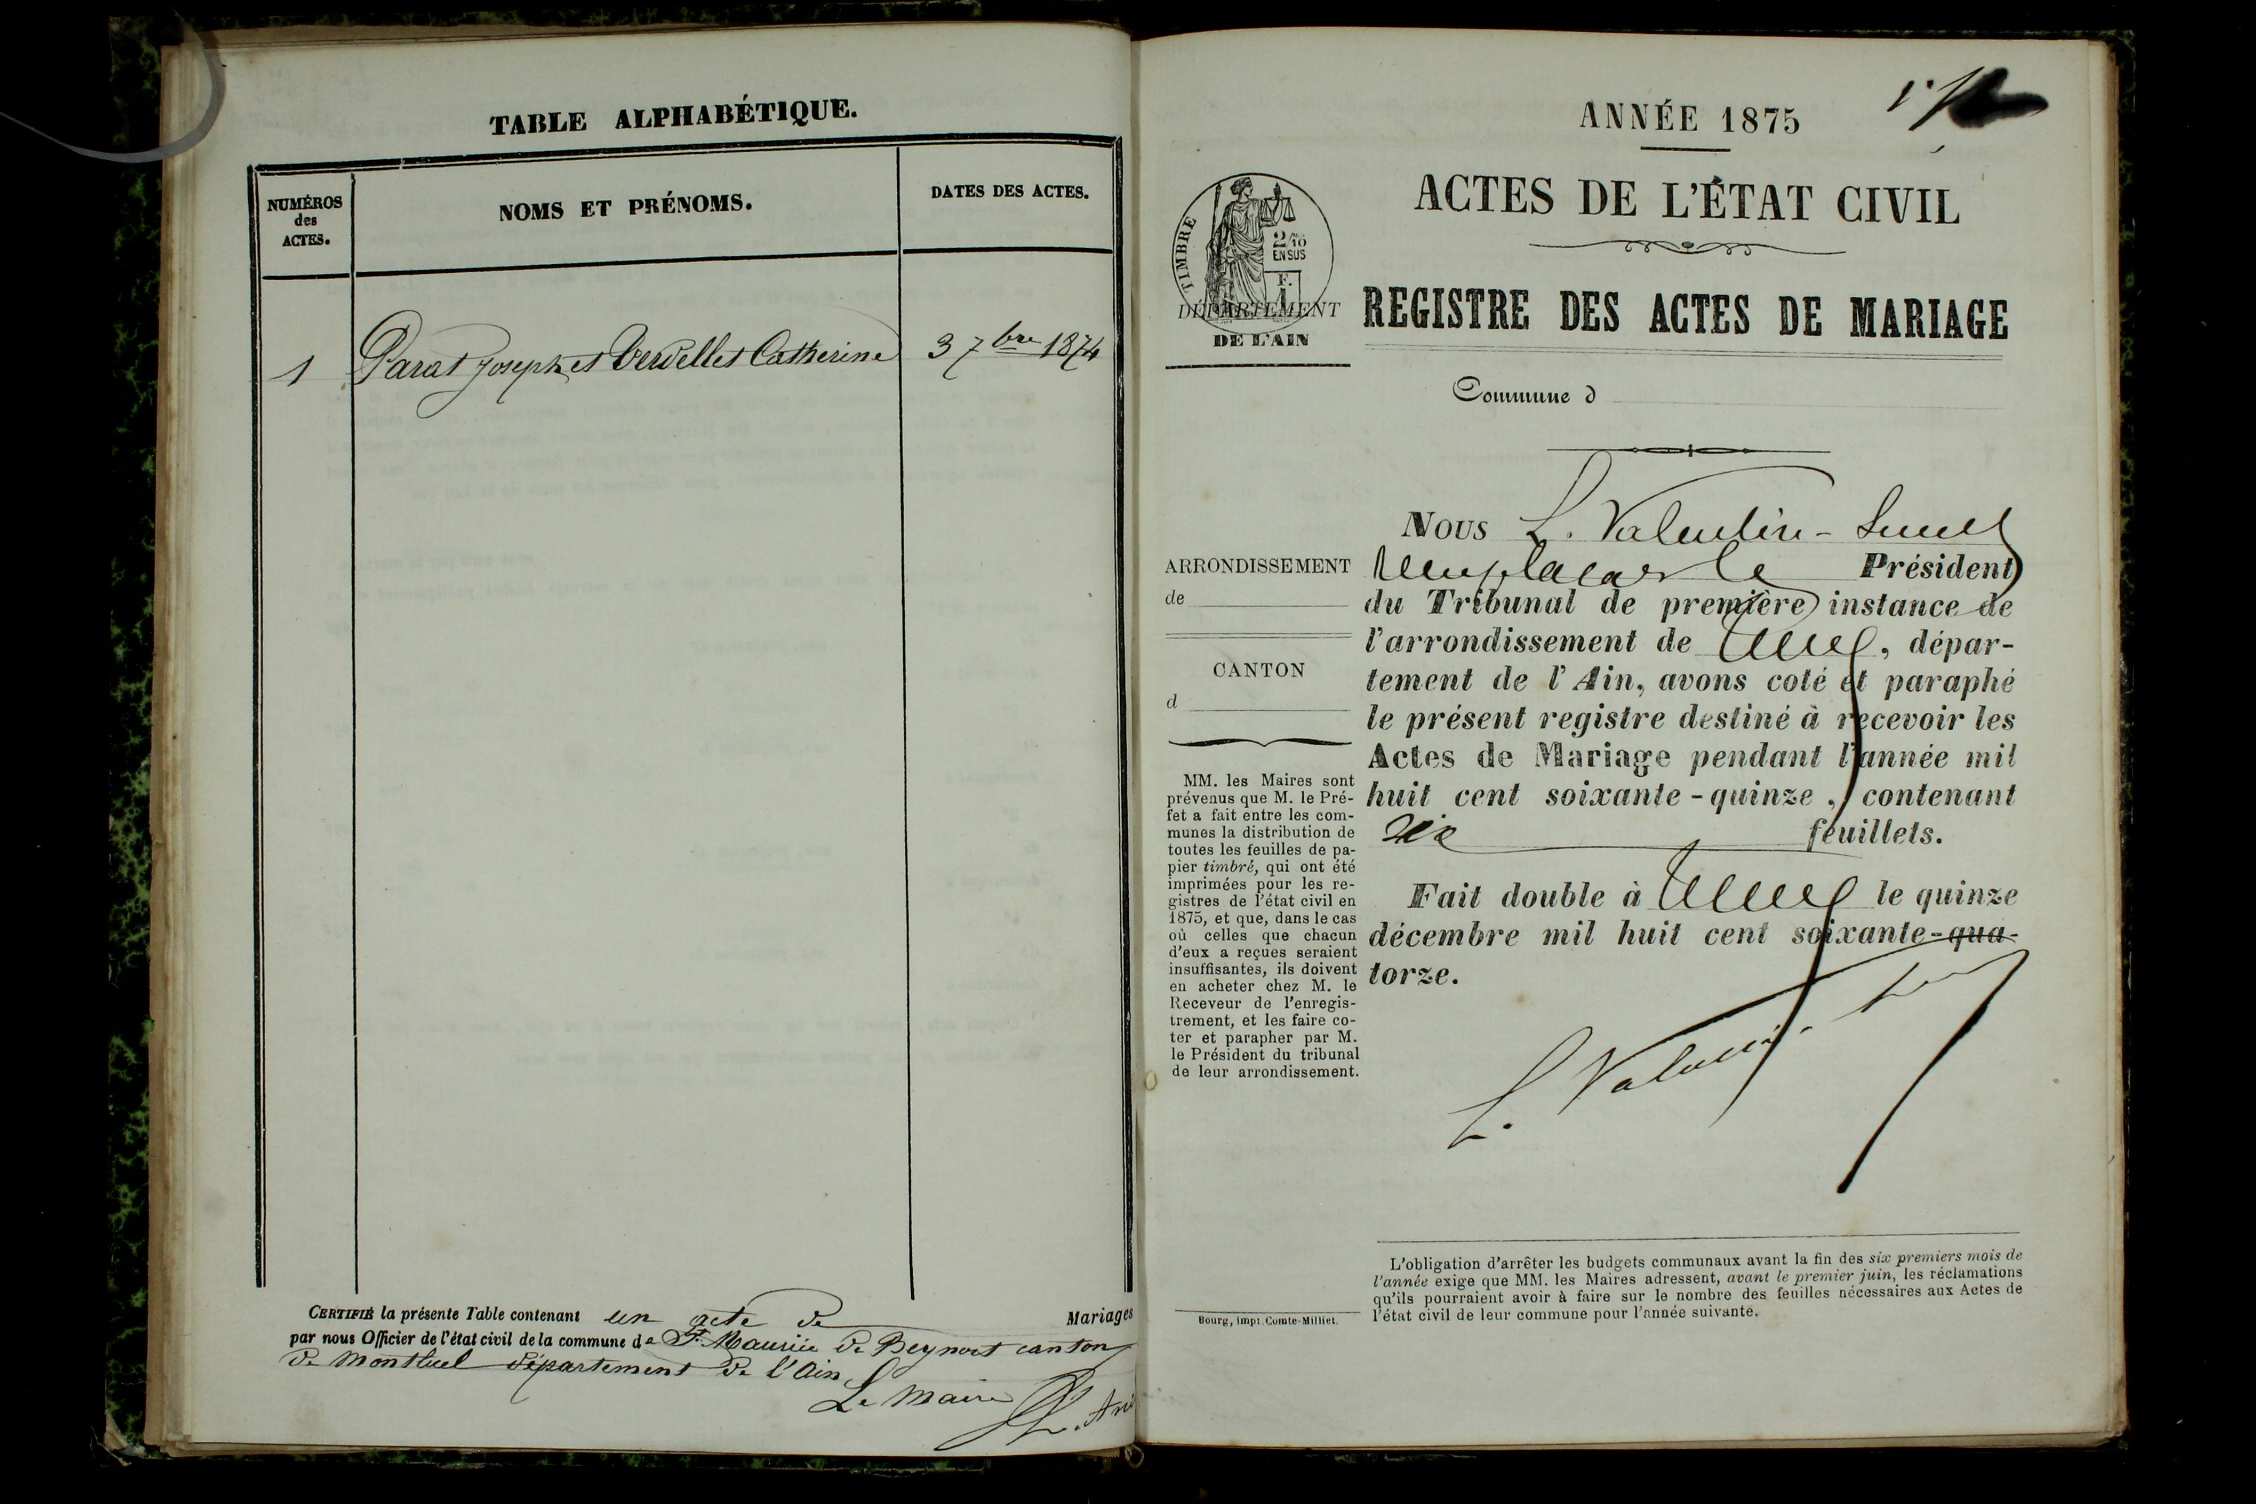 TABLE ALPHABÉTIQUE.
NUMÉROS
des
ACTES.
NOMS ET PRÉNOMS.
DATES DES ACTES.
1 Parat Joseph et Verdellet Catherine 3 7bre 1874
CERTIFIÉ la présente Table contenant un acte de Mariages
par nous Officier de l'état civil de la commune de St Maurice de Beynost canton
de Montluel département de l'Ain
Le Maire
ANNÉE 1875
ACTES DE L'ÉTAT CIVIL
TIMBRE
2/10
EN SUS
F.
1
DÉPARTEMENT
DE L'AIN
REGISTRE DES ACTES DE MARIAGE
Commune d
ARRONDISSEMENT
de
CANTON
d
MM. les Maires sont
prévenus que M. le Pré-
fet a fait entre les com-
munes la distribution de
toutes les feuilles de pa-
pier timbré, qui ont été
imprimées pour les re-
gistres de l'état civil en
1875, et que, dans le cas
où celles que chacun
d'eux a reçues seraient
insuffisantes, ils doivent
en acheter chez M. le
Receveur de l'enregis-
trement, et les faire co-
ter et parapher par M.
le Président du tribunal
de leur arrondissement.
Bourg, impr. Comte-Milliet.
Nous L. Valentin-Smith
Président
du Tribunal de première instance de
l'arrondissement de , dépar-
tement de l'Ain, avons coté et paraphé
le présent registre destiné à recevoir les
Actes de Mariage pendant l'année mil
huit cent soixante-quinze, contenant
six feuillets.
Fait double à le quinze
décembre mil huit cent soixante-qua-
torze.
L. Valentin-
L'obligation d'arrêter les budgets communaux avant la fin des six premiers mois de
l'année exige que MM. les Maires adressent, avant le premier juin, les réclamations
qu'ils pourraient avoir à faire sur le nombre des feuilles nécessaires aux Actes de
l'état civil de leur commune pour l'année suivante.